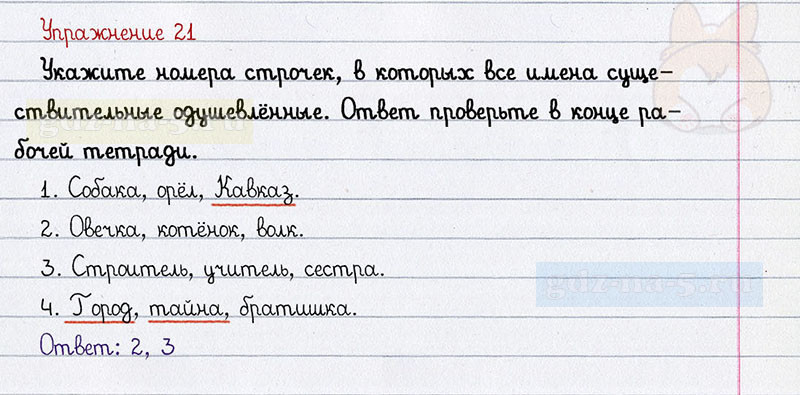 Упражнение 21
Укажите номера строчек, в которых все имена суще-
ствительные одушевлённые. Ответ проверьте в конце ра-
бочей тетради.
1. Собака, орёл, Кавказ.
2. Овечка, котёнок, волк.
3. Строитель, учитель, сестра.
gdz-na-5.ru
4. Город, тайна, братишка.
Ответ: 2, 3